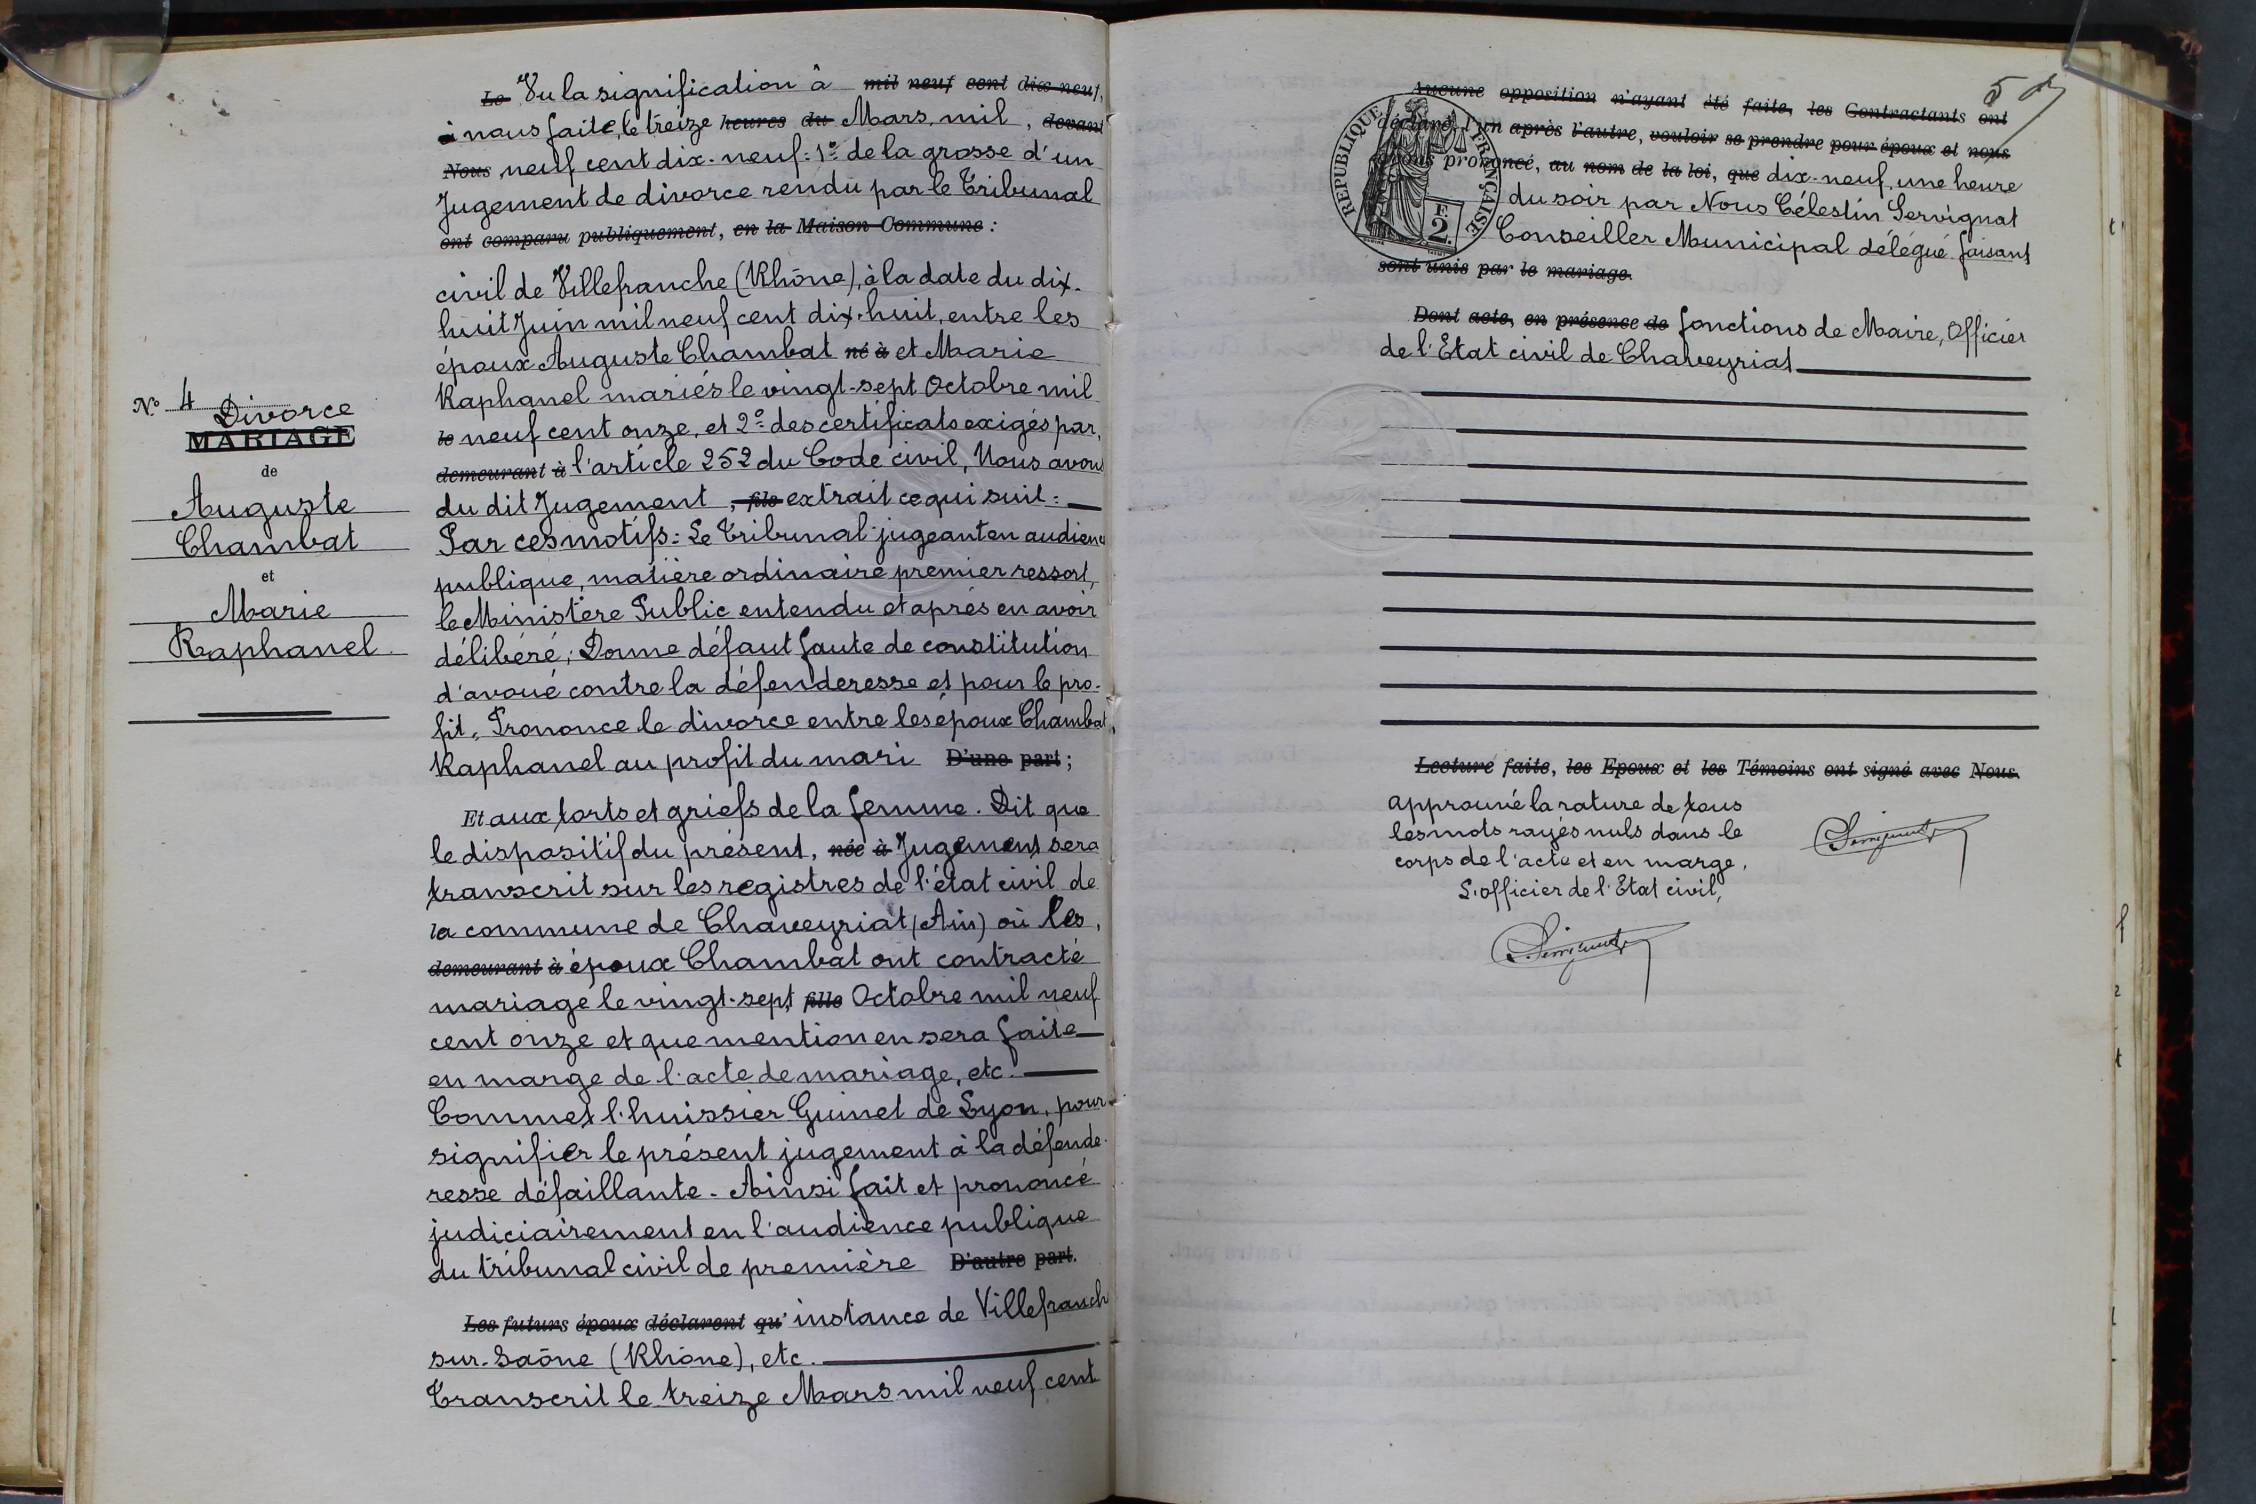 N° 4
Divorce
MARIAGE
de
Auguste
Chambat
et
Marie
Raphanel
Le Vu la signification à mil neuf cent dix-neuf,
à nous faite, le treize heures du Mars, mil, devant
Nous neuf cent dix-neuf: 1° de la grosse d'un
Jugement de divorce rendu par le Tribunal
ont comparu publiquement, en la Maison Commune :
civil de Villefranche (Rhône), à la date du dix-
huit Juin mil neuf cent dix-huit, entre les
époux Auguste Chambat né à et Marie
Raphanel mariés le vingt-sept Octobre mil
le neuf cent onze, et 2° des certificats exigés par,
demeurant à l'article 252 du Code civil, Nous avons
du dit Jugement, fils extrait ce qui suit :
Par ces motifs : Le Tribunal jugeant en audience
publique, matière ordinaire premier ressort,
le Ministère Public entendu et après en avoir
délibéré; Donne défaut faute de constitution
d'avoué contre la défenderesse et pour le pro-
fit, Prononce le divorce entre les époux Chambat
Raphanel au profit du mari D'une part ;
Et aux torts et griefs de la femme. Dit que
le dispositif du présent, née à Jugement sera
transcrit sur les registres de l'état civil de
la commune de Chaveyriat (Ain) où les,
demeurant à époux Chambat ont contracté
mariage le vingt-sept, fille Octobre mil neuf
cent onze et que mention en sera faite
en marge de l'acte de mariage, etc.
Commet l'huissier Guinet de Lyon, pour
signifier le présent jugement à la défende-
resse défaillante. Ainsi fait et prononcé
judiciairement en l'audience publique
du tribunal civil de première D'autre part.
Les futurs époux déclarent qu' instance de Villefranch
sur-Saône (Rhône), etc.
Transcrit le treize Mars mil neuf cent
5
Aucune opposition n'ayant été faite, les Contractants ont
déclaré, l'un après l'autre, vouloir se prendre pour époux et nous
avons prononcé, au nom de la loi, que dix-neuf, une heure
du soir par Nous Célestin Servignat
Conseiller Municipal délégué faisant
sont unis par le mariage.
RÉPUBLIQUE FRANÇAISE
F.
2.
Dont acte, en présence de fonctions de Maire, Officier
de l'Etat civil de Chaveyriat
Lecture faite, les Epoux et les Témoins ont signé avec Nous.
Approuvé la rature de tous
les mots rayés nuls dans le
corps de l'acte et en marge.
L'officier de l'Etat civil,
Servignat
Servignat